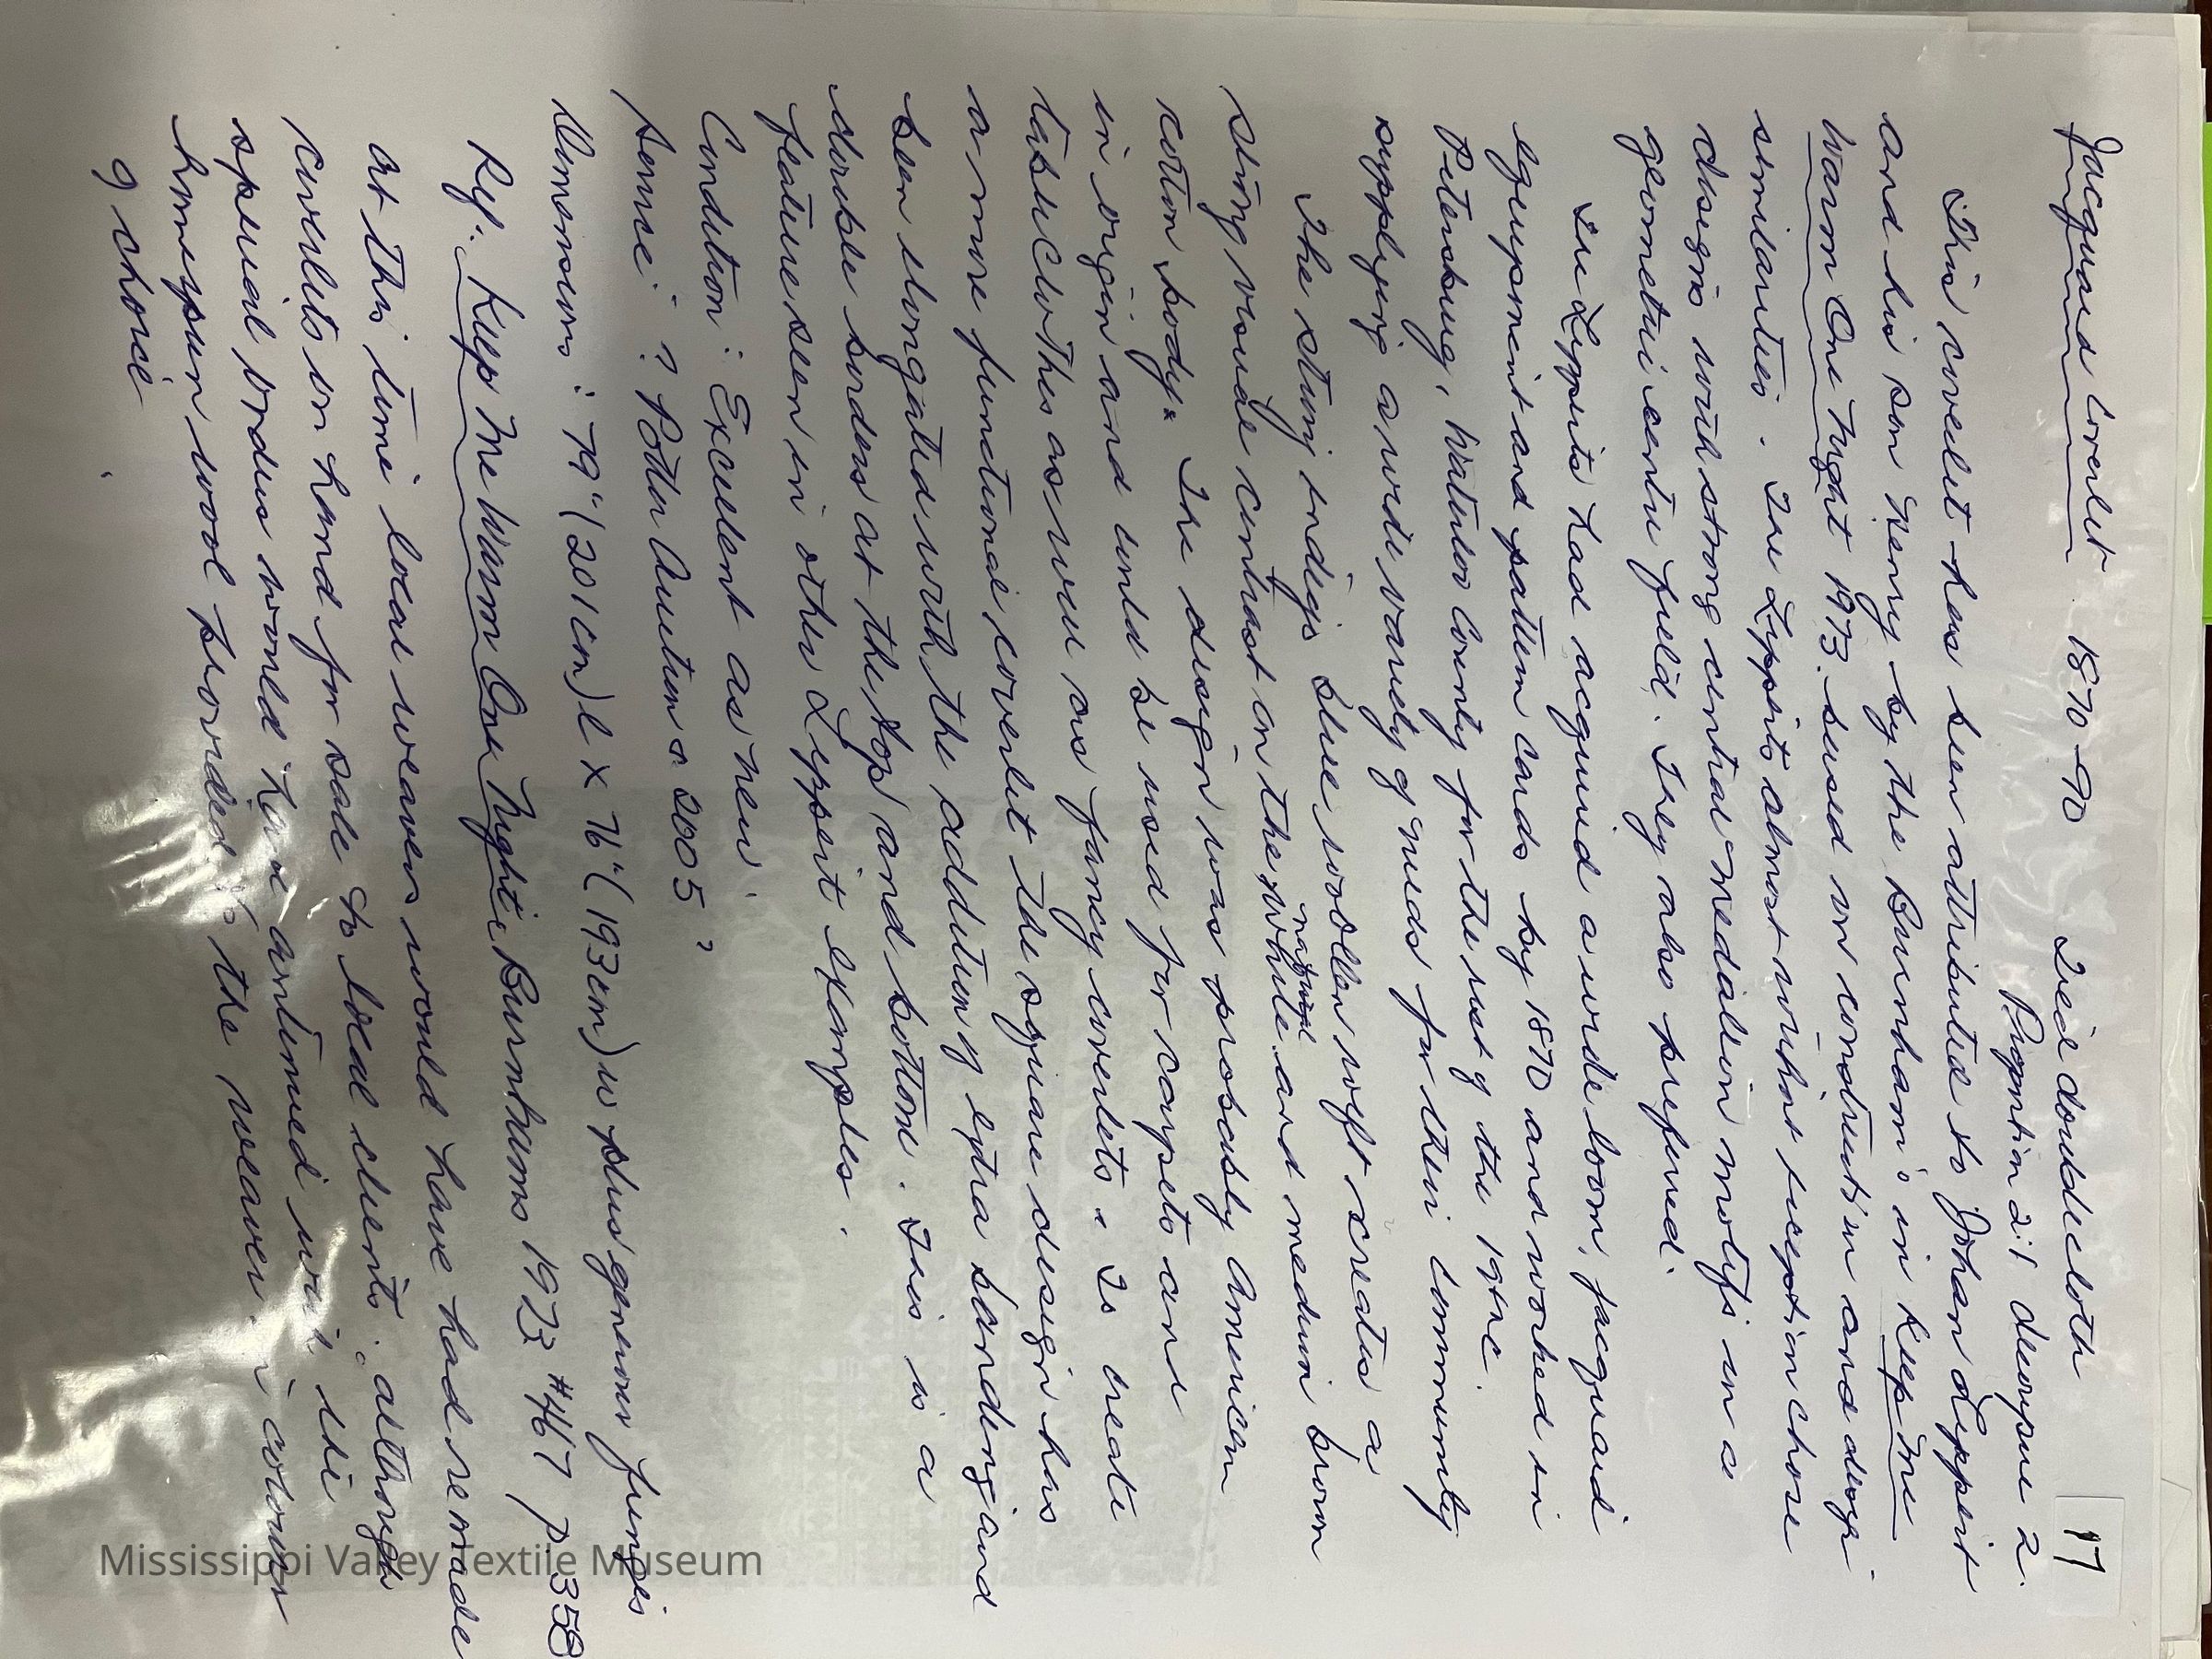 17
Jacquard Coverlet 1870-90 Tied doublecloth
Proportion 2:1 decoupure 2.
This coverlet has been attributed to Johan Lippert
and his son Henry by the Burnham's in Keep Me
Warm One Night 1973 based on construct'n and design
similarities. The Lipperts almost without exception chose
designs with strong central medallion motifs in a
geometric centre field. They also preferred
The Lipperts had acquired a wide loom, jacquard
equipment and pattern cards by 1870 and worked in
Petersburg, Waterloo County for the rest of the 19thC.
supplying a wide variety of needs for their community
The strong indigo blue woollen weft creates a
natural
strong visual contrast on the white and medium brown
cotton body. The design was probably American
in origin and could be used for carpets and
tablecloths as well as fancy coverlets. To create
a more functional coverlet the square design has
been elongated with the addition of extra banding and
double borders at the top and bottom. This is a
feature seen in other Lippert examples.
Condition: Excellent as new.
Source: ? Potter Auction 2005 ?
Dimensions: 79" (201cm) l x 76" (193cm) w plus generous fringes
Ref. Keep Me Warm One Night: Burnhams 1973 #467 p.358
At this time local weavers would have had remade
coverlets on hand for sale to local clients although
special orders would have continued with the
homespun wool provided to the weaver in colours
of choice.
Mississippi Valley Textile Museum